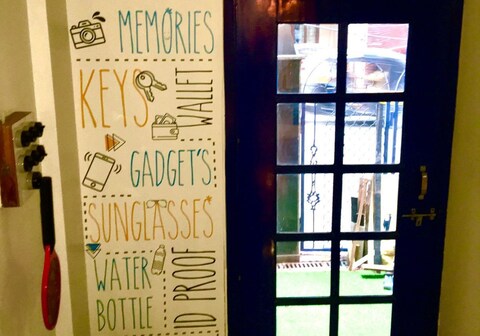 MEMORIES
KEYS
WALLET
GADGET'S
SUNGLASSES
WATER
BOTTLE
ID PROOF